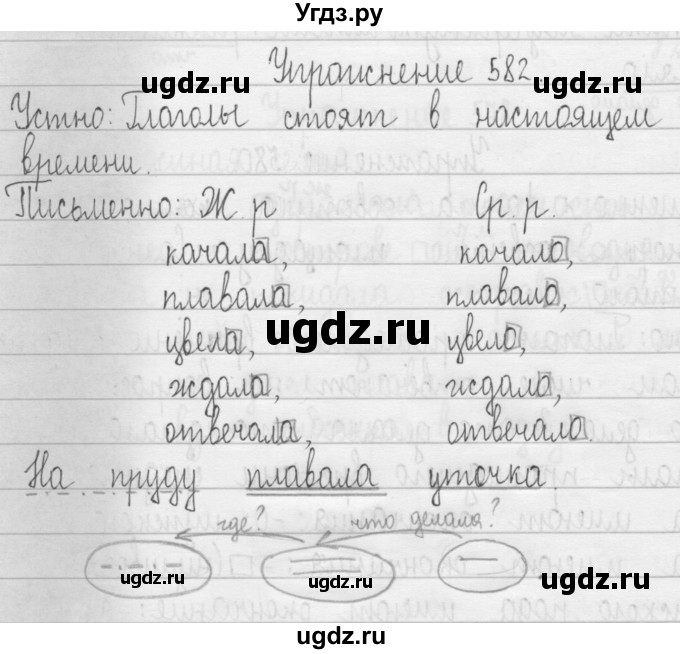 Угдз.ру
Упражнение 582
ugdz.ru ugdz.ru
Устно: Глаголы стоят в настоящем
времени.
Письменно: Ж. р Ср. р.
качала, качало,
плавала, плавало,
ugdz.ru
цвела, цвело,
ждала, ждало,
отвечала, отвечало
На пруду плавала уточка.
где? что делала?
ugdz.ru ugdz.ru ugdz.ru
ugdz.ru